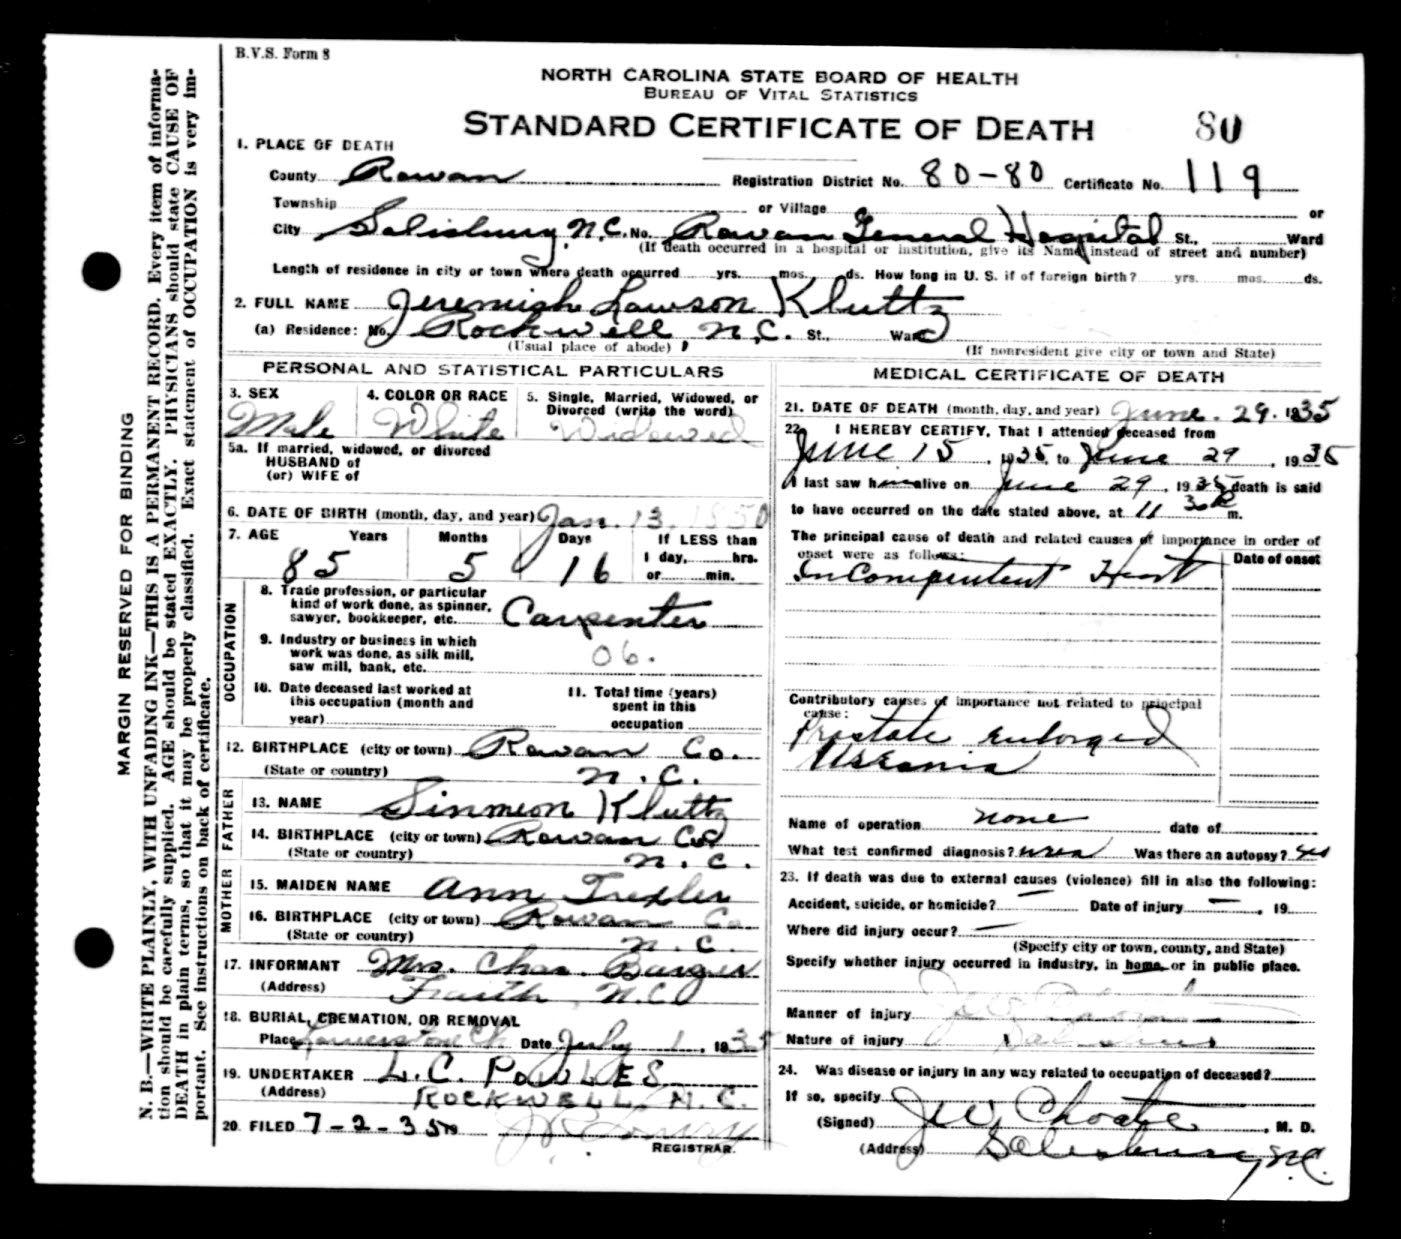 B.V.S. Form 8
NORTH CAROLINA STATE BOARD OF HEALTH
BUREAU OF VITAL STATISTICS
STANDARD CERTIFICATE OF DEATH 80
1. PLACE OF DEATH
County Rowan Registration District No. 80-80 Certificate No. 119
Township or Village or
City Salisbury, N.C. No. Rowan General Hospital St., Ward
(If death occurred in a hospital or institution, give its Name instead of street and number)
Length of residence in city or town where death occurred yrs. mos. ds. How long in U. S. if of foreign birth? yrs. mos. ds.
2. FULL NAME Jeremiah Lawson Kluttz
(a) Residence: No. Rockwell, N.C. St., Ward
(Usual place of abode) (If nonresident give city or town and State)
PERSONAL AND STATISTICAL PARTICULARS
3. SEX 4. COLOR OR RACE 5. Single, Married, Widowed, or
Divorced (write the word)
Male White Widowed
5a. If married, widowed, or divorced
HUSBAND of
(or) WIFE of
6. DATE OF BIRTH (month, day, and year) Jan. 13, 1850
7. AGE Years Months Days If LESS than
1 day, hrs.
85 5 16 or min.
OCCUPATION
8. Trade profession, or particular
kind of work done, as spinner,
sawyer, bookkeeper, etc. Carpenter
9. Industry or business in which
work was done, as silk mill,
saw mill, bank, etc. 06.
10. Date deceased last worked at
this occupation (month and
year)
11. Total time (years)
spent in this
occupation
12. BIRTHPLACE (city or town) Rowan Co.
(State or country) N. C.
FATHER
13. NAME Sinmeon Kluttz
14. BIRTHPLACE (city or town) Rowan Co
(State or country) N. C.
MOTHER
15. MAIDEN NAME Ann Trexler
16. BIRTHPLACE (city or town) Rowan Co
(State or country) N. C.
17. INFORMANT Mrs. Chas. Barger
(Address) Faith, N.C
18. BURIAL, CREMATION, OR REMOVAL
Place Date July 1, 1935
19. UNDERTAKER L.C. POWLES
(Address) ROCKWELL, N.C.
20. FILED 7-2-35
REGISTRAR.
MEDICAL CERTIFICATE OF DEATH
21. DATE OF DEATH (month, day, and year) June. 29. 1935
22. I HEREBY CERTIFY, That I attended deceased from
June 15, 1935, to June 29, 1935
I last saw him alive on June 29, 1935 death is said
to have occurred on the date stated above, at 11 30 m.
The principal cause of death and related causes of importance in order of
onset were as follows: Date of onset
Incompentent Heart
Contributory causes of importance not related to principal
cause:
Prostate enlarged
Uremia
Name of operation none date of
What test confirmed diagnosis? Was there an autopsy? yes
23. If death was due to external causes (violence) fill in also the following:
Accident, suicide, or homicide? — Date of injury —, 19
Where did injury occur? —
(Specify city or town, county, and State)
Specify whether injury occurred in industry, in home, or in public place.
Manner of injury
Nature of injury
24. Was disease or injury in any way related to occupation of deceased?
If so, specify
(Signed) J W Choate, M. D.
(Address) Salisbury, N.C.
MARGIN RESERVED FOR BINDING
N. B.—WRITE PLAINLY, WITH UNFADING INK—THIS IS A PERMANENT RECORD. Every item of informa-
tion should be carefully supplied. AGE should be stated EXACTLY. PHYSICIANS should state CAUSE OF
DEATH in plain terms, so that it may be properly classified. Exact statement of OCCUPATION is very im-
portant. See instructions on back of certificate.